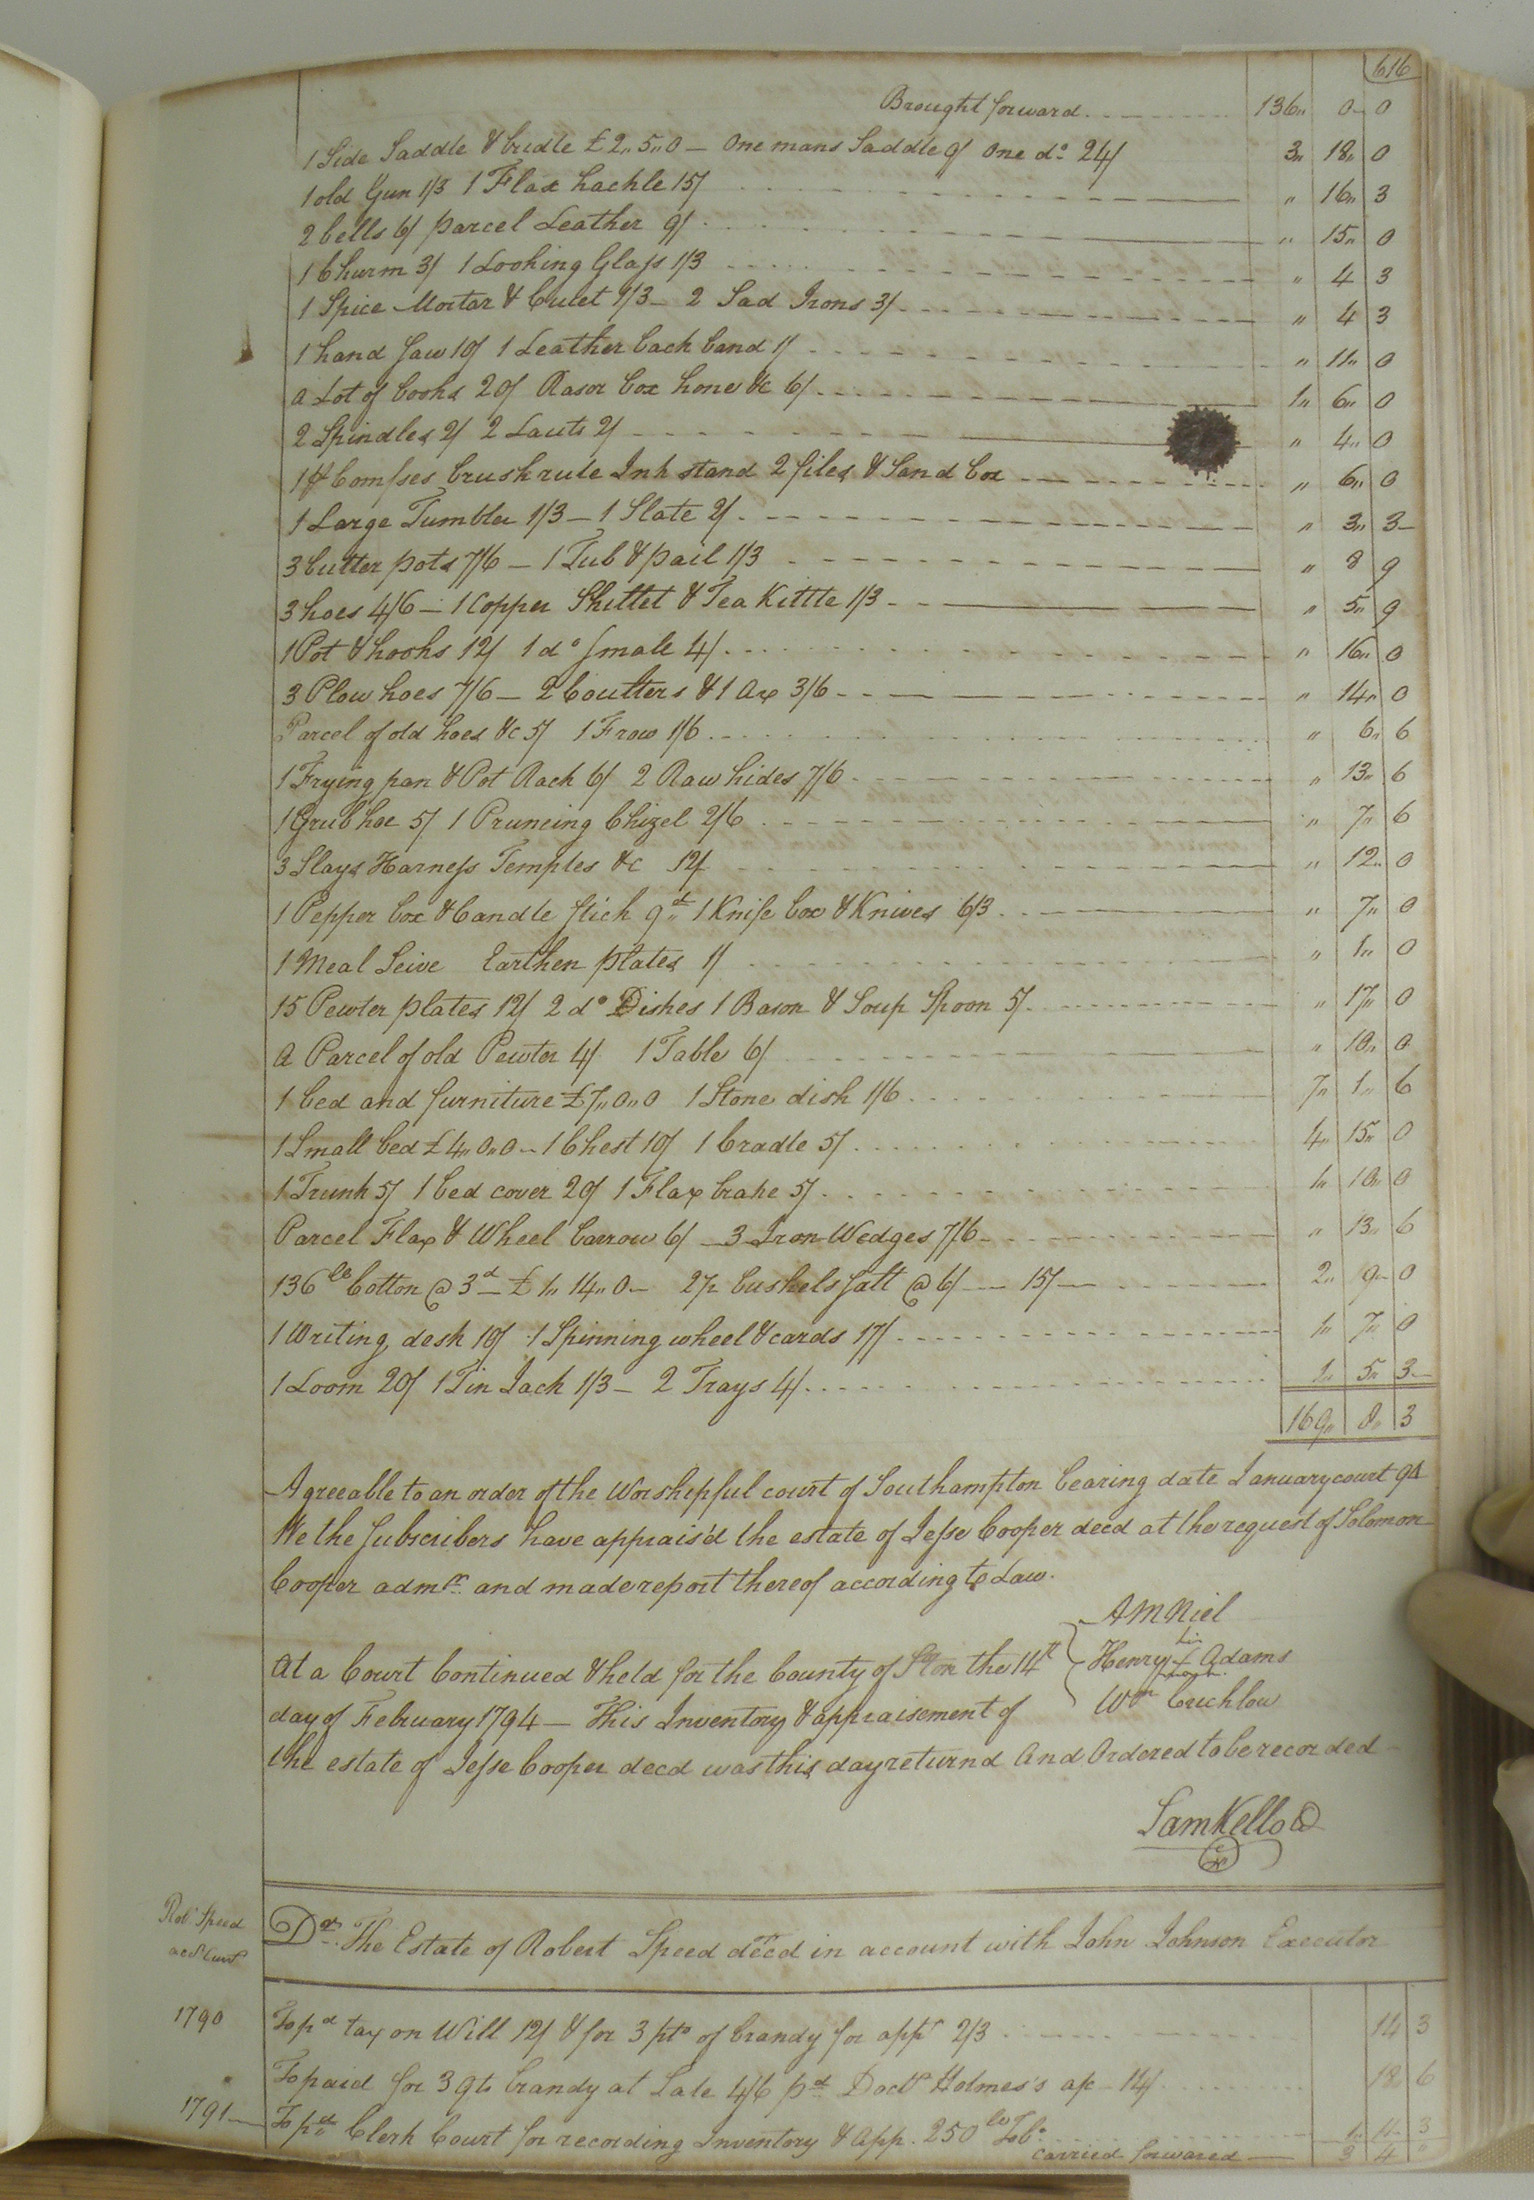 616
Brought forward 136,, 0 - 0
1 Side Saddle & bridle £2,,5,,0 — One mans Saddle 9/ One do. 24/ 3,, 18,, 0
1 old Gun 1/3 1 Flax hackle 15/ ,, 16,, 3
2 bells 6/ parcel Leather 9/ ,, 15,, 0
1 Churm 3/ 1 Looking Glass 1/3 ,, 4 3
1 Spice Mortar & Cruet 1/3 — 2 Sad Irons 3/ ,, 4 3
1 hand saw 10/ 1 Leather back band 1/ ,, 11,, 0
a Lot of books 20/ Rasor box hone &c 6/ 1,, 6,, 0
2 Spindles 2/ 2 2/ ,, 4,, 0
1 pr Comsses brush rule Ink stand 2 files & Sand box ,, 6,, 0
1 Large Tumbler 1/3 — 1 Slate 2/ ,, 3,, 3
3 butter pots 7/6 — 1 Tub & pail 1/3 ,, 8 9
3 hoes 4/6 — 1 Copper Skillet & Tea Kittle 1/3 ,, 5,, 9
1 Pot & hooks 12/ 1 do small 4/ ,, 16,, 0
3 Plow hoes 7/6 — 2 Coulters & 1 Ax 3/6 ,, 14,, 0
Parcel of old hoes &c 5/ 1 Frow 1/6 ,, 6,, 6
1 Frying pan & Pot Rack 6/ 2 Raw hides 7/6 ,, 13,, 6
1 Grub hoe 5/ 1 Pruneing Chizel 2/6 ,, 7,, 6
3 Slays Harness Temples &c 12/ ,, 12,, 0
1 Pepper box & Candle stick 9d,, 1 Knife box & Knives 6/3 ,, 7,, 0
1 Meal Seive Earthen plates 1/ ,, 1,, 0
15 Pewter plates 12/ 2 do Dishes 1 Bason & Soup Spoon 5/ ,, 17,, 0
a Parcel of old Pewter 4/ 1 Table 6/ ,, 10,, 0
1 bed and furniture £7,,0,,0 1 Stone dish 1/6 7,, 1,, 6
1 Small bed £4,,0,,0 — 1 Chest 10/ 1 Cradle 5/ 4,, 15,, 0
1 Trunk 5/ 1 bed cover 20/ 1 Flax brake 5/ 1,, 10,, 0
Parcel Flax & Wheel barrow 6/ — 3 Iron Wedges 7/6 ,, 13,, 6
136 lb Cotton @ 3d — £1,,14,,0 — 2½ bushels salt @ 6/ — 15/ — 2,, 9 - 0
1 Writing desk 10/ 1 Spinning wheel & cards 17/ 1,, 7,, 0
1 Loom 20/ 1 Tin Jack 1/3 — 2 Trays 4/ 1,, 5,, 3
169,, 8,, 3
Agreeable to an order of the Worshipful court of Southampton bearing date January court 94
We the subscribers have apprais'd the estate of Jesse Cooper decd at the request of Solomon
Cooper admr. and made report thereof according to Law.
A MNiel
Henry his + mark Adams
Wm Crichlow
At a Court Continued & held for the County of Ston the 14th
day of February 1794 — This Inventory & appraisement of
the estate of Jesse Cooper decd was this day returnd And Ordered to be recorded
Sam Kello C
Rob Speed
acct Curt
Dr. The Estate of Robert Speed decd in account with John Johnson Executor
1790 To pd tax on Will 12/ & for 3 pts of brandy for appt 2/3 14 3
To paid for 3 qts brandy at Sale 4/6 pd Doctr Holmes's a/c 14/ 18 6
1791 To pd Clerk Court for recording Inventory & app. 250 lb Tobo. 1,, 11 3
carried forward 3 4 ,,